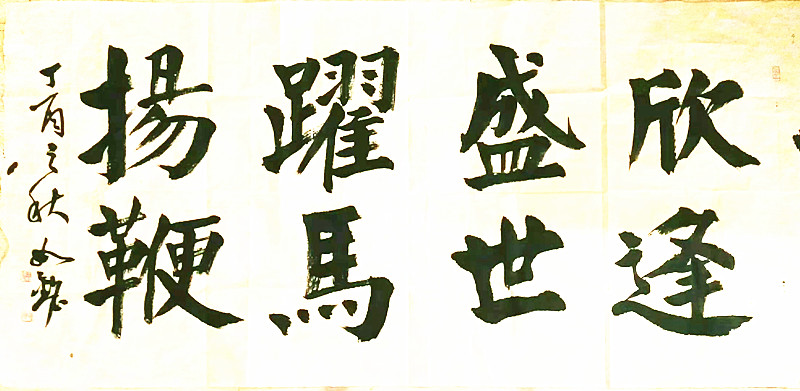 欣逢
盛世
躍馬
揚鞭
丁酉之秋